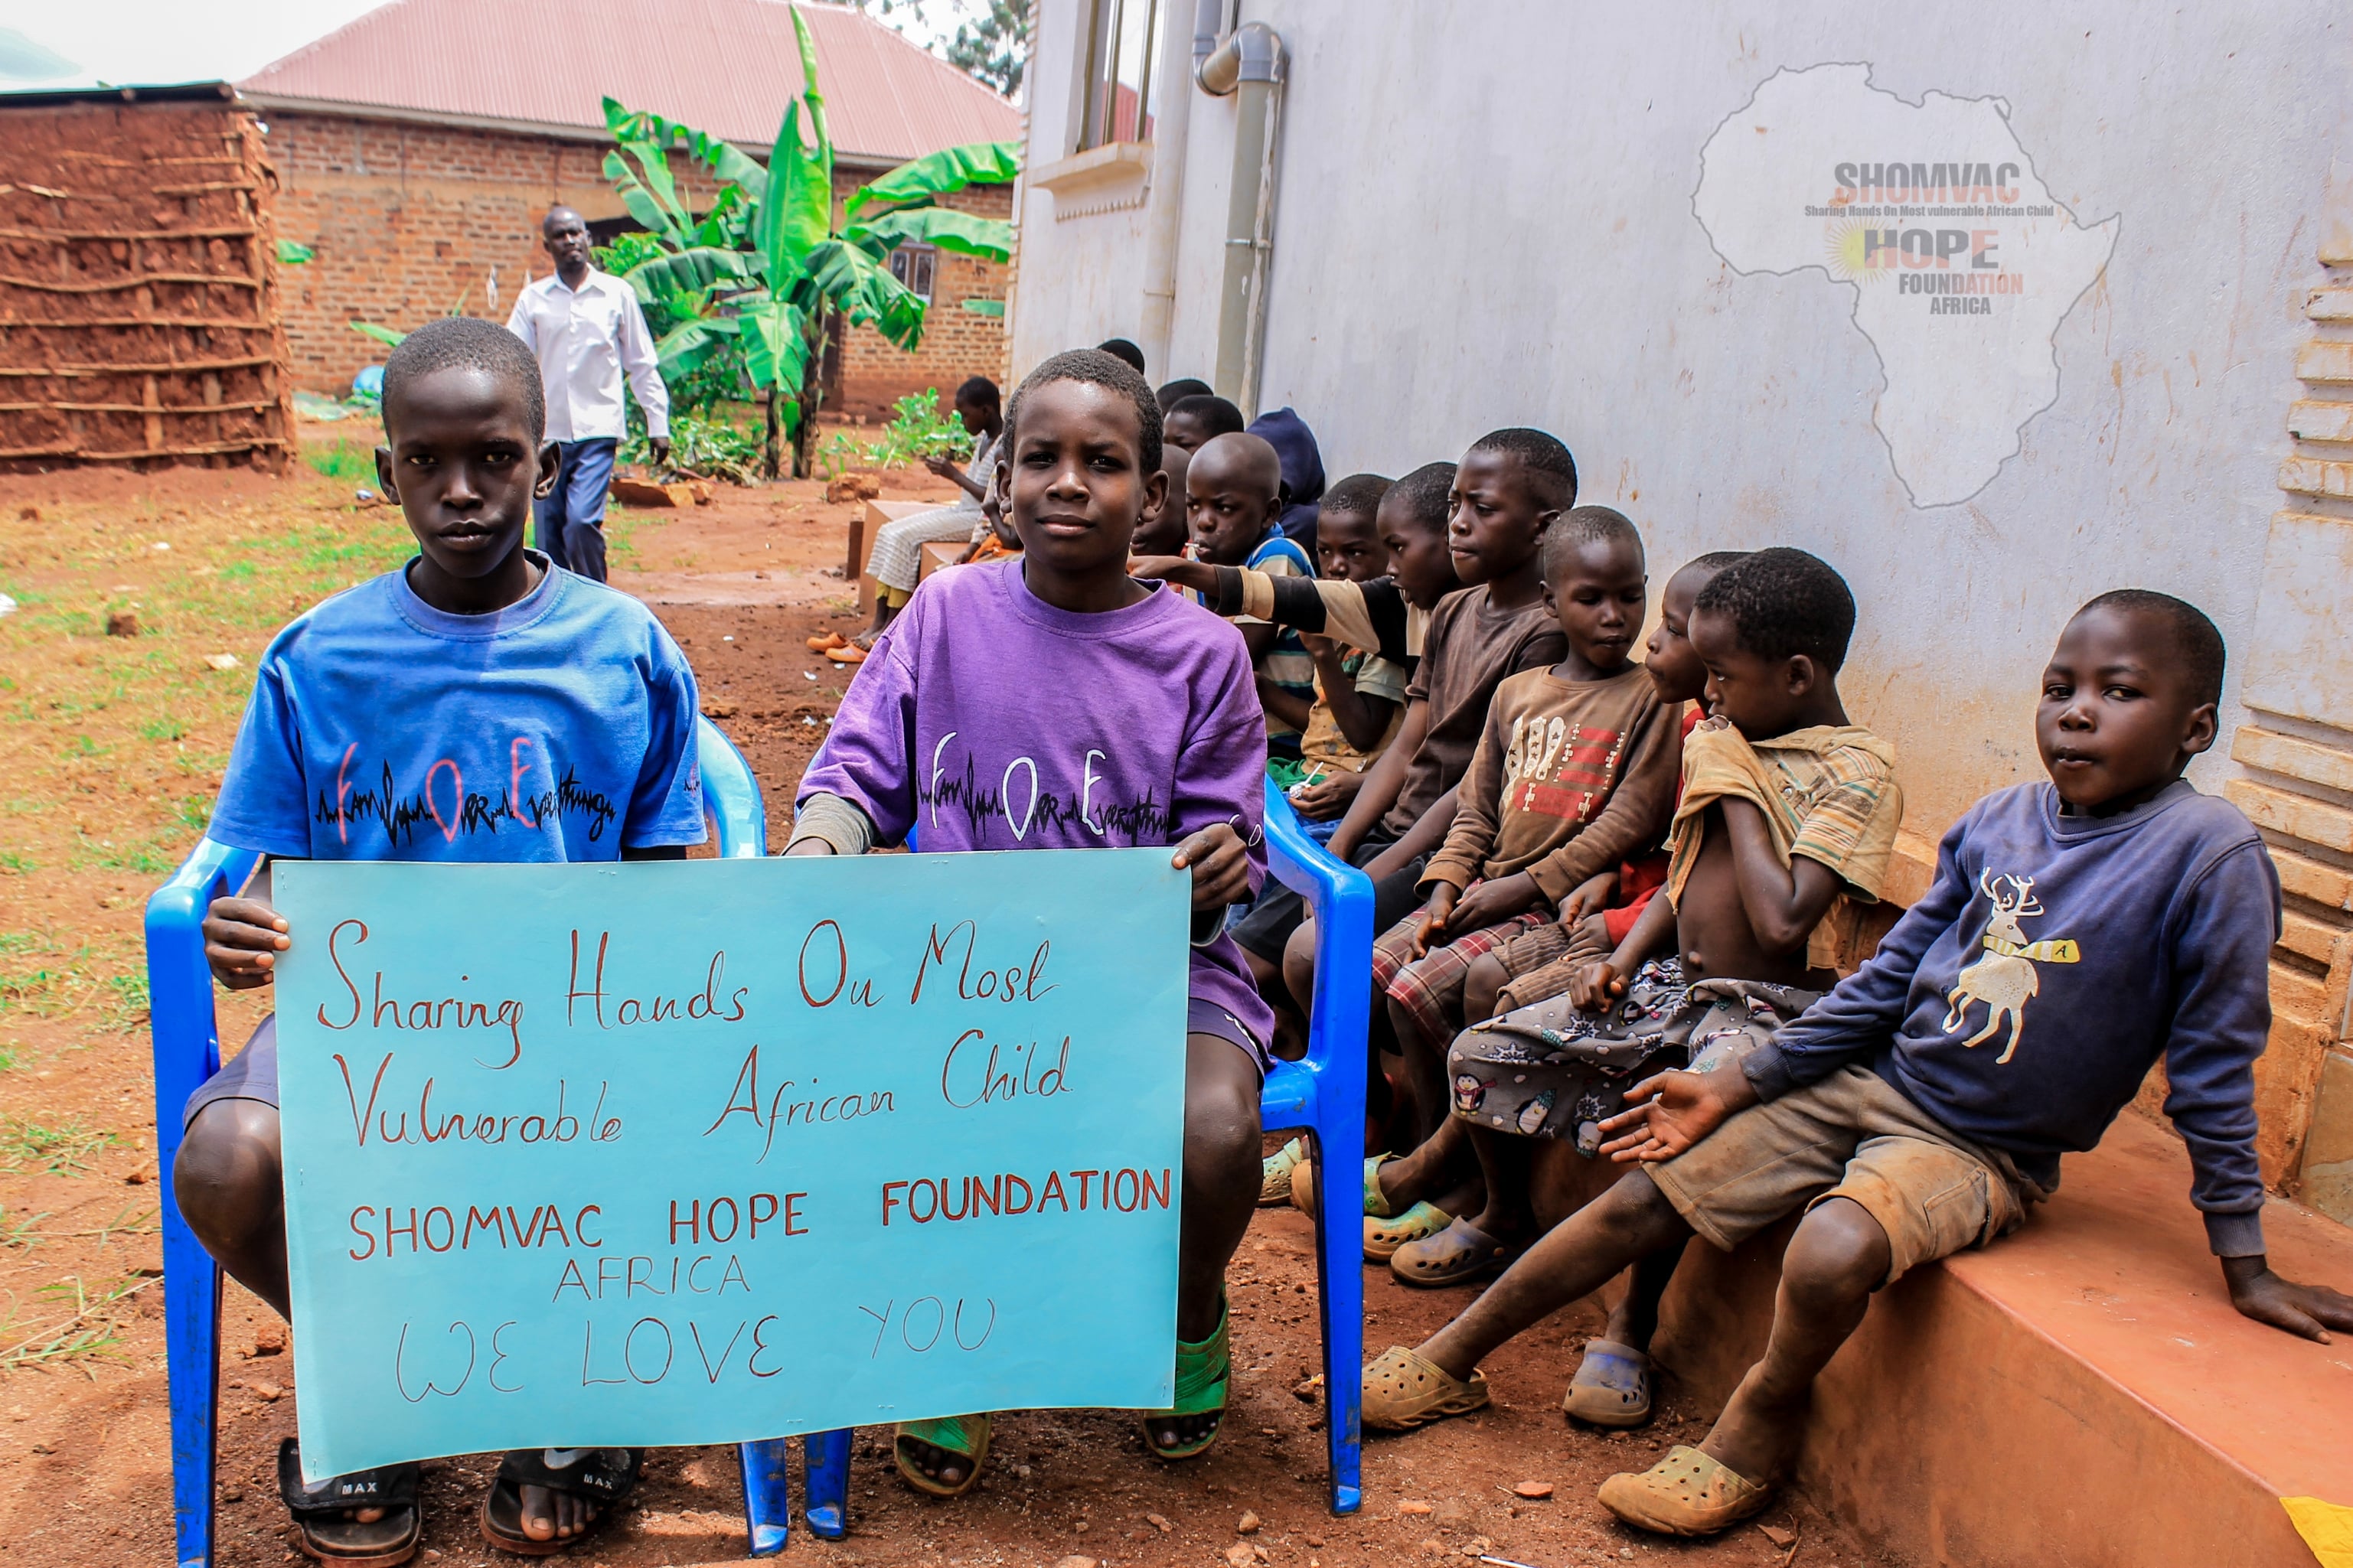 SHOMVAC
Sharing Hands On Most vulnerable African Child
HOPE
FOUNDATION
AFRICA
Family OvER Everything
Family OvER Everything
A
Sharing Hands On Most
Vulnerable African Child
SHOMVAC HOPE FOUNDATION
AFRICA
WE LOVE YOU
MAX
MAX